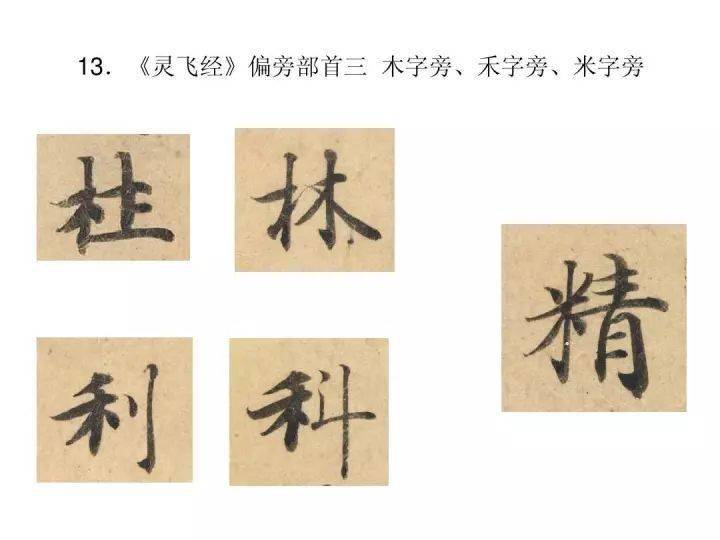 13. 《灵飞经》偏旁部首三 木字旁、禾字旁、米字旁
柱 林
精
利 科